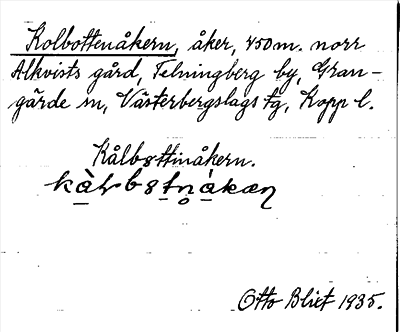 Kolbottenåkern, åker, 450 m. norr
Alkvists gård, Telningberg by, Gran-
gärde sn, Västerbergslags tg, Kopp l.
Kålbottinåkern.
Otto Blixt 1935.